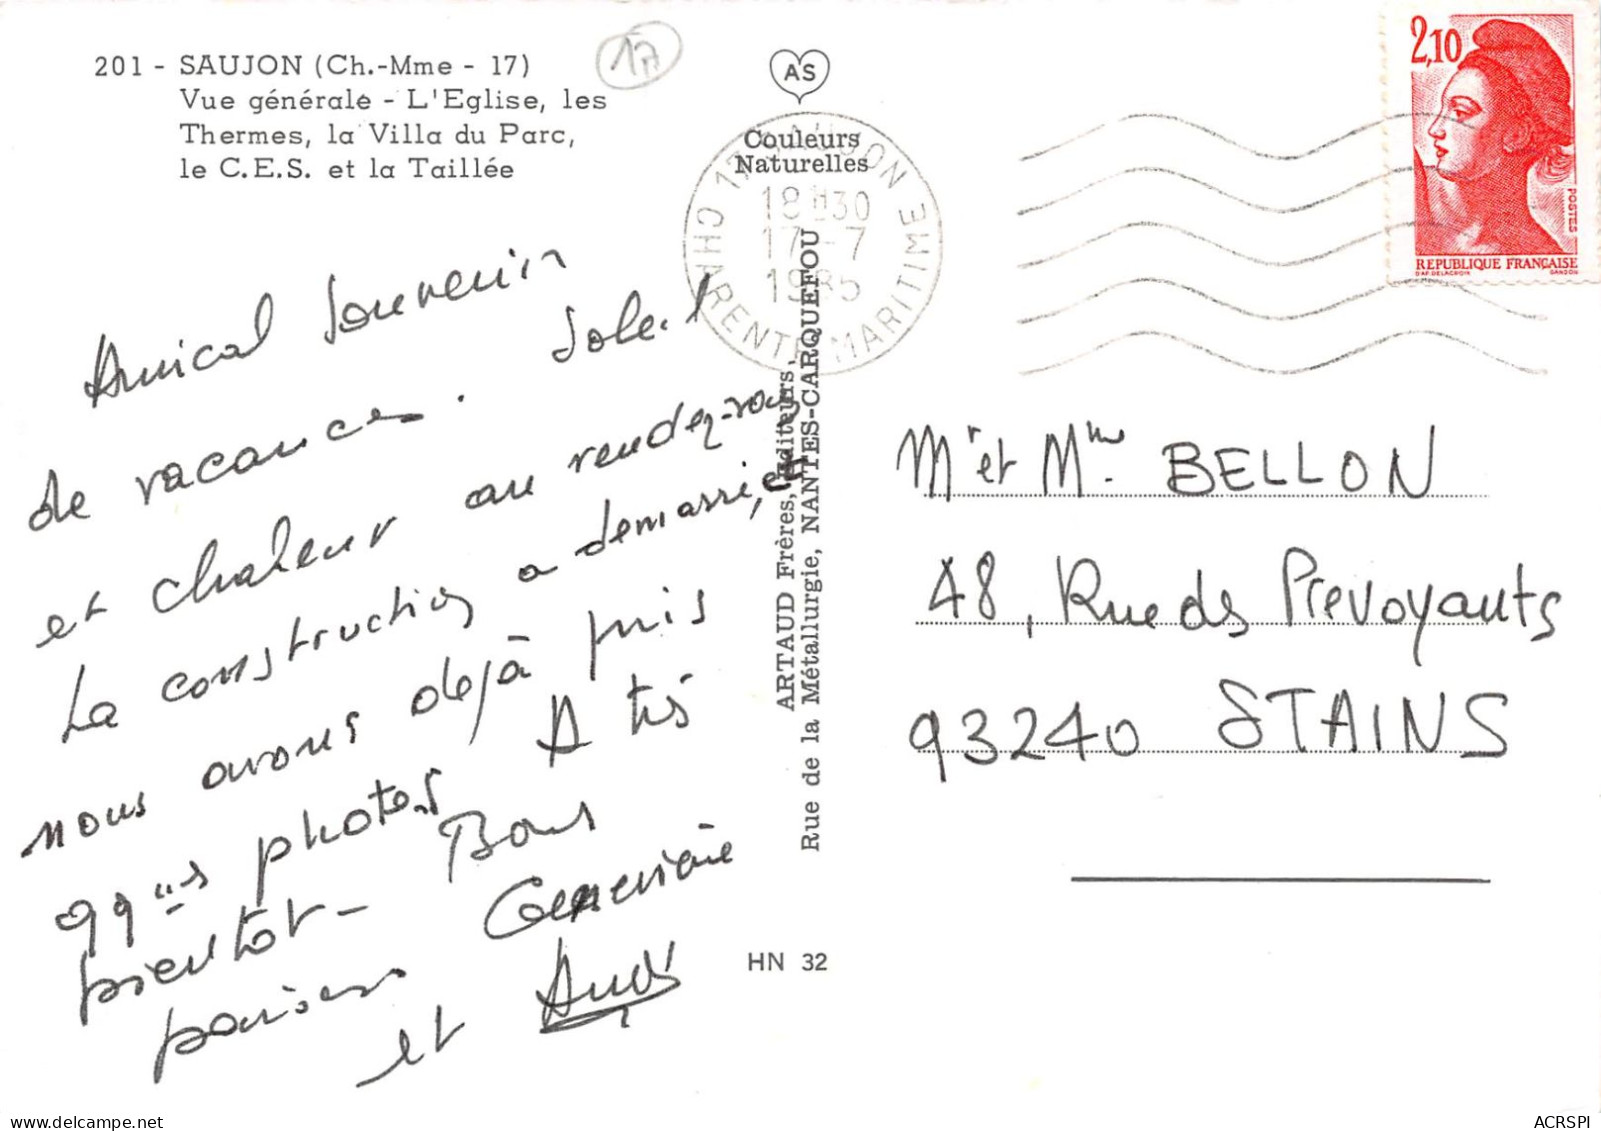 201 - SAUJON (Ch.-Mme - 17)
Vue générale - L'Eglise, les
Thermes, la Villa du Parc,
le C.E.S. et la Taillée
17
AS
Couleurs
Naturelles
17 SAUJON
18H30
17 - 7
1985
CHARENTE MARITIME
2,10
POSTES
REPUBLIQUE FRANÇAISE
D'AP. DELACROIX GANDON
Amical Souvenir
de vacances. Soleil
et chaleur au rendez-vous
La construction a demarrée, et
nous avons dejà pris
qqunes photos A très
bientot - Bons
baisers Geneviève
et
ARTAUD Frères, Editeurs,
Rue de la Métallurgie, NANTES-CARQUEFOU
HN 32
Mr et Mme BELLON
48, Rue des Prevoyants
93240 STAINS
ACRSPI